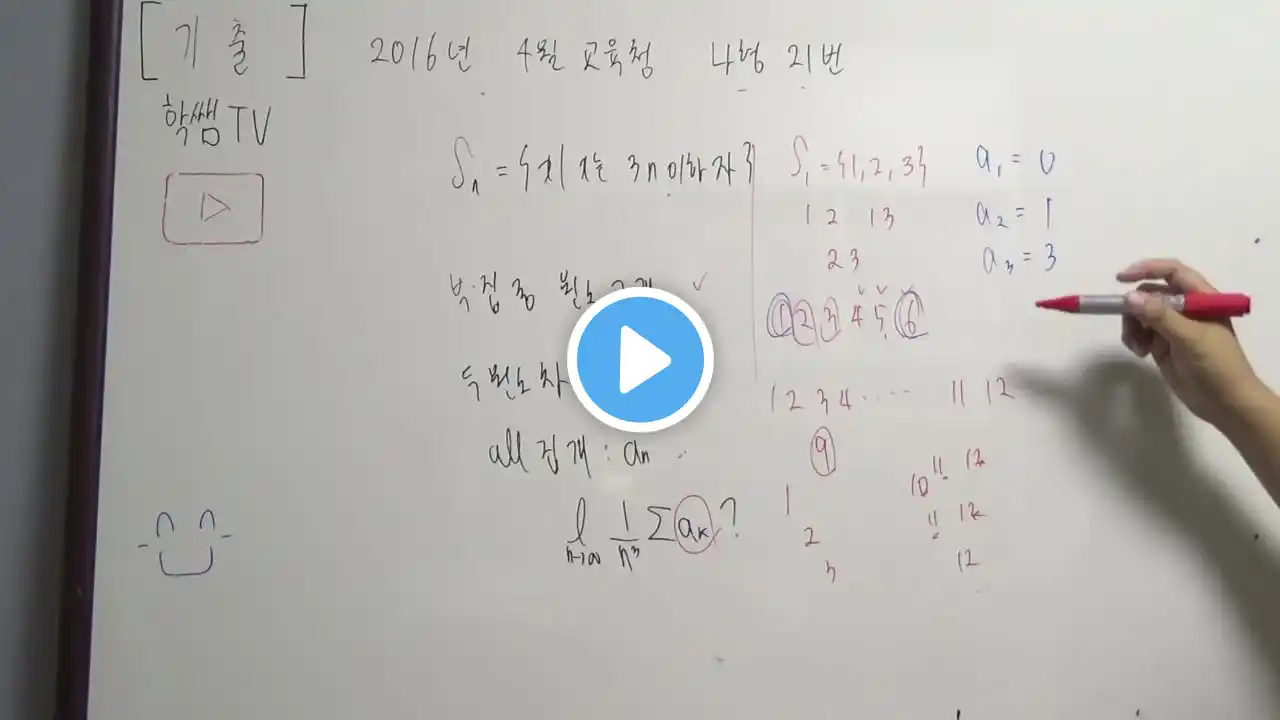 [기출] 2016년 4월 교육청 나형 21번
학쌤TV
Sₙ = {x | x는 3n이하 자}
부.집 중 원소 2개 ✓
두 원소 차
all 집 개 : aₙ
lim n→∞ 1/n³ Σ aₖ ?
S₁ = {1, 2, 3}
1 2 1 3
2 3
a₁ = 0
a₂ = 1
a₃ = 3
1 2 3 4 5 6
1 2 3 4 ···· 11 12
9
1 10 11 12
2 11 12
3 12